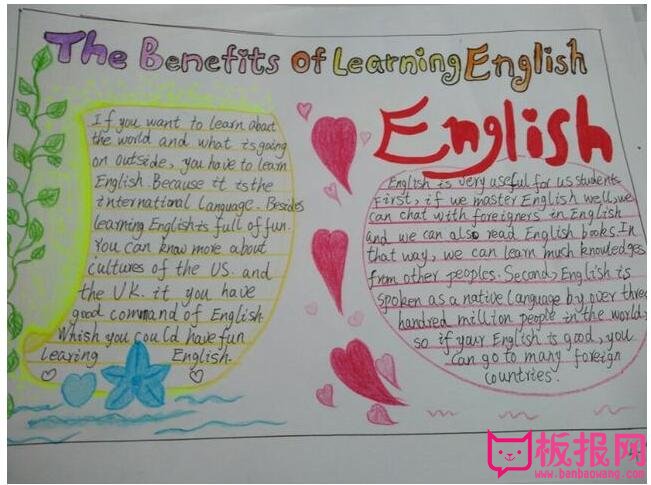 The Benefits of Learning English
If you want to learn about
the world and what is going
on outside, you have to learn
English. Because it is the
international Language. Besides
learning English is full of fun.
You can know more about
cultures of the US. and
the UK. it you have
good command of English.
Whish you could have fun
Learing English.
English
English is very useful for us students
First, if we master English well, we
can chat with foreigners in English
and we can also read English books. In
that way, we can learn much knowledges
from other peoples. Second, English is
spoken as a native language by over three
hundred million people in the world,
so if your English is good, you
can go to many foreign
countries.
板报网
www.banbaowang.com